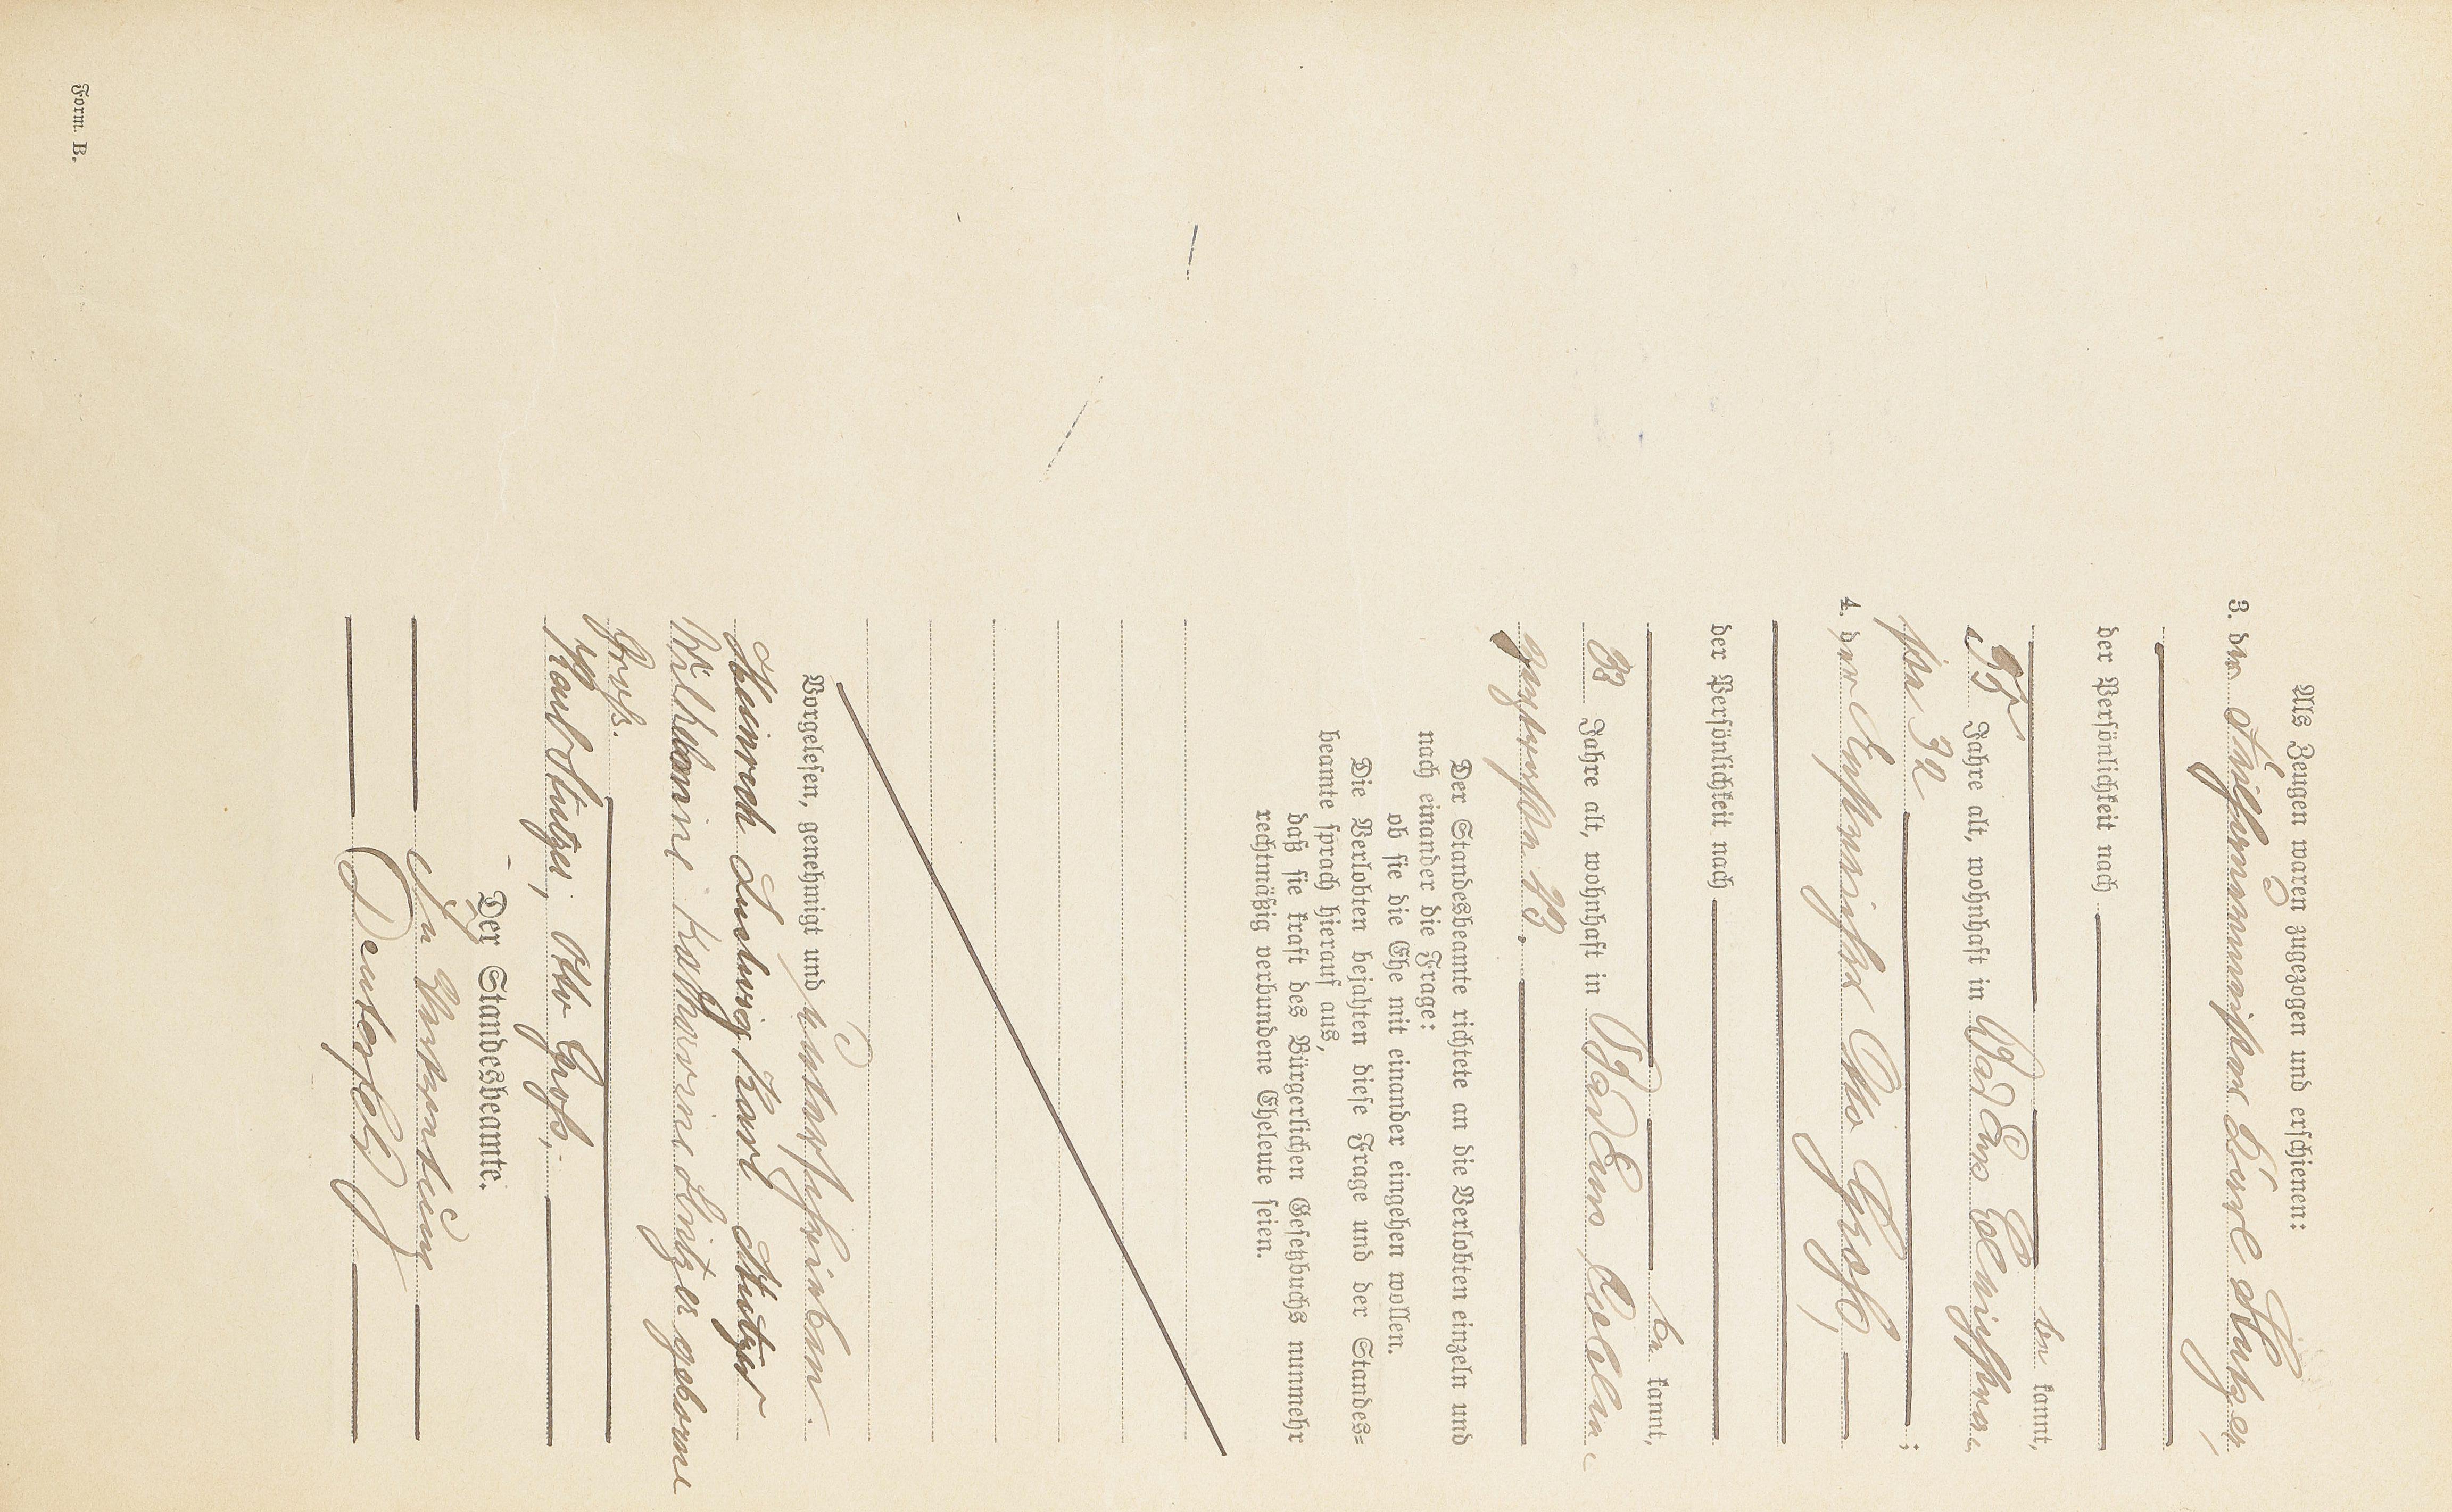 Als Zeugen waren zugezogen und erschienen:
3. der Karl Stutzer,
der Persönlichkeit nach
be kannt,
35 Jahre alt, wohnhaft in Bad Ems
32 ;
4. der Otto Groß,
der Persönlichkeit nach
be kannt,
38 Jahre alt, wohnhaft in Bad Ems,
13.
Der Standesbeamte richtete an die Verlobten einzeln und
nach einander die Frage:
ob sie die Ehe mit einander eingehen wollen.
Die Verlobten bejahten diese Frage und der Standes=
beamte sprach hierauf aus,
daß sie kraft des Bürgerlichen Gesetzbuchs nunmehr
rechtmäßig verbundene Eheleute seien.
Vorgelesen, genehmigt und unterschrieben.
Heinrich Ludwig Karl Stutzer
Wilhelmine Katharine Stutzer geborene
Groß.
Karl Stutzer, Otto Groß,
Der Standesbeamte.
In Vertretung
Form. B.